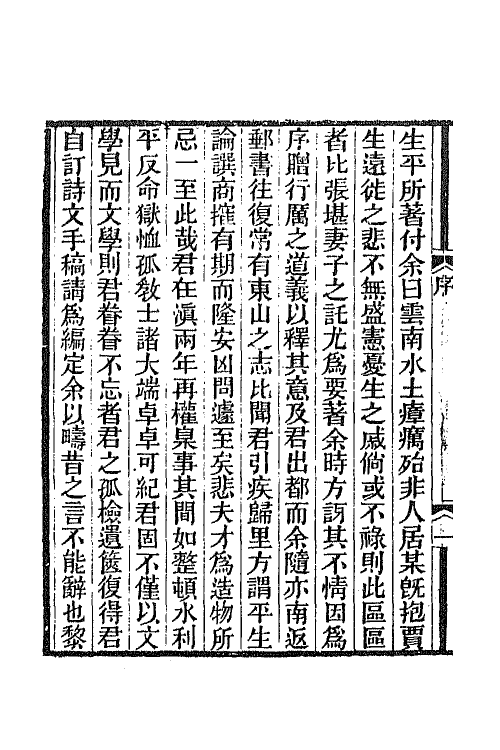 生平所著付余曰雲南水土瘴癘殆非人居某旣抱賈
生遠徙之悲不無盛憲憂生之戚倘或不祿則此區區
者比張堪妻子之託尤爲要著余時方訝其不情因爲
序贈行厲之道義以釋其意及君出都而余隨亦南返
郵書往復常有東山之志比聞君引疾歸里方謂平生
論譔商搉有期而隆安凶問遽至矣悲夫才爲造物所
忌一至此哉君在滇兩年再權臬事其間如整頓水利
平反命獄恤孤敎士諸大端卓卓可紀君固不僅以文
學見而文學則君眷眷不忘者君之孤檢遺篋復得君
自訂詩文手稿請爲編定余以疇昔之言不能辭也黎
序
一